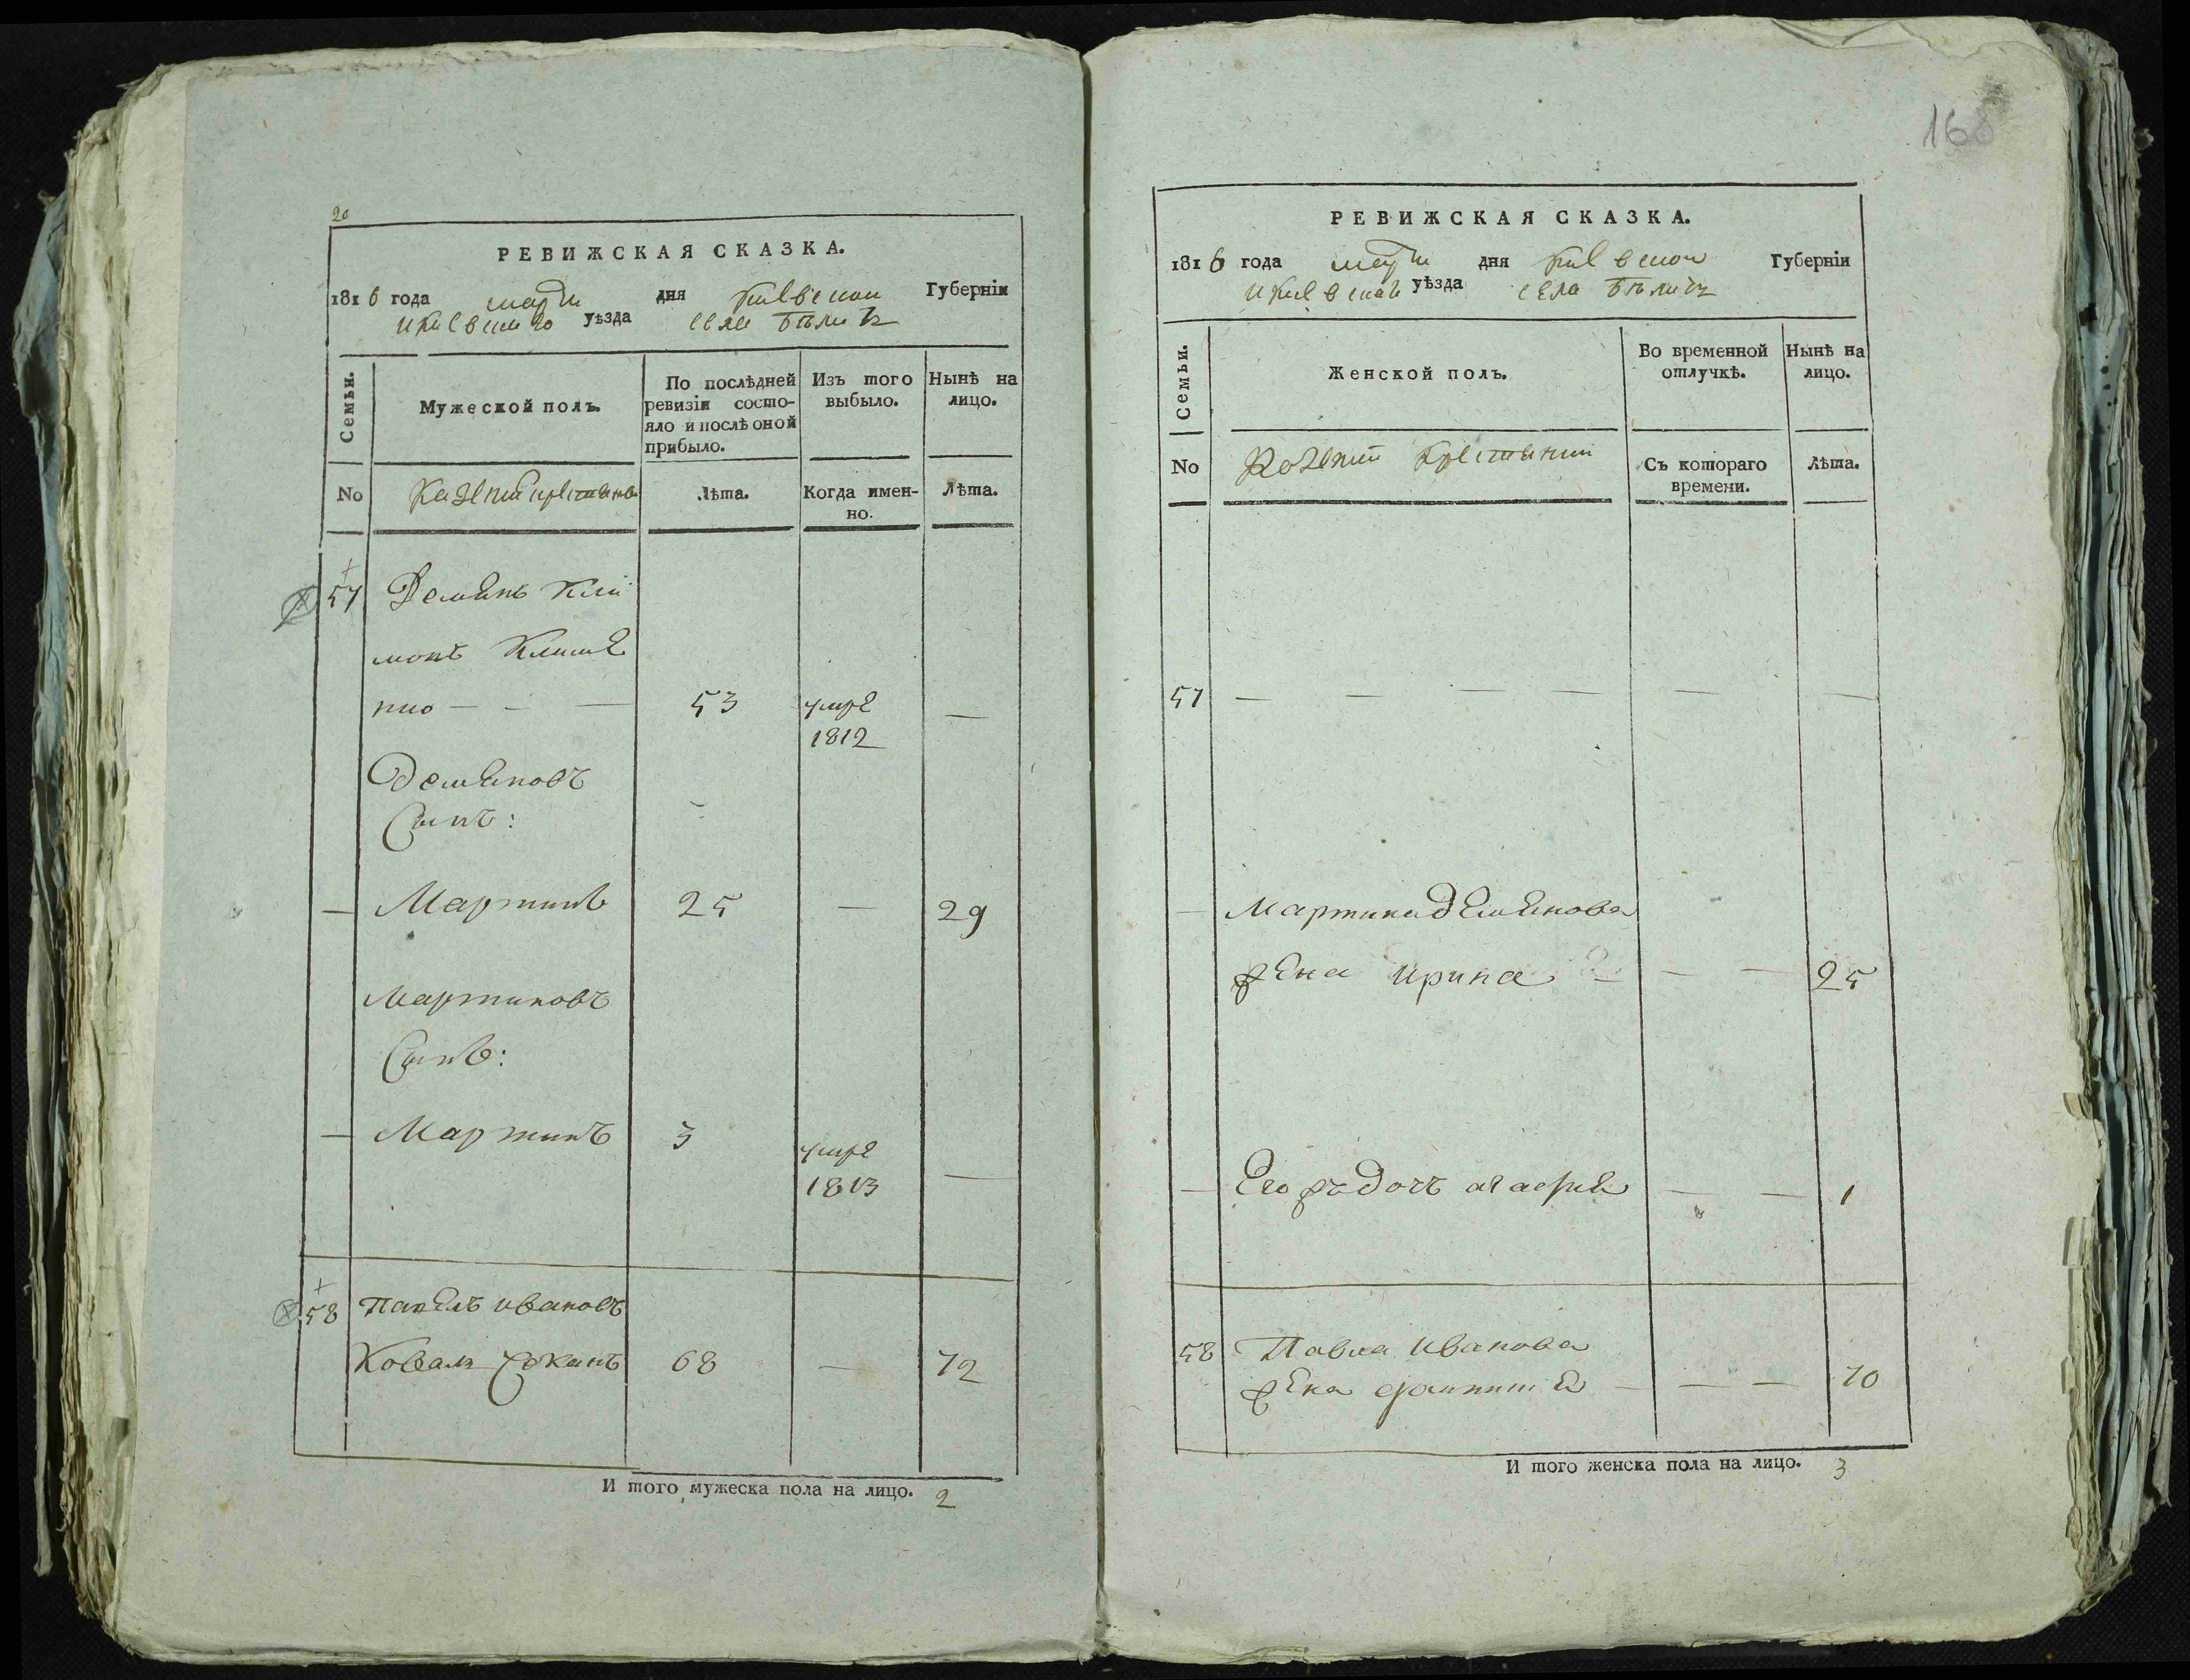 20
РЕВИЖСКАЯ СКАЗКА.
1816 года марта дня Киевской Губерніи
и Киевского уѣзда села Бѣличъ
Семьи.
Мужеской полъ.
По послѣдней ревизіи состо-
яло и послѣ оной
прибыло.
Изъ того
выбыло.
Нынѣ на
лицо.
No
Казенни крестяне
Лѣта.
Когда имен-
но.
Лѣта.
57 Демянъ Кли
монъ Климе
нко — - — 53 умре —
1812
Демяновъ
Сынъ:
— Мартинъ 25 — 29
Мартиновъ
Сынъ:
— Мартинъ 3 умре —
1813
58 Павелъ Ивановъ
Коваль 68 — 72
И того мужеска пола на лицо. 2
168
РЕВИЖСКАЯ СКАЗКА.
1816 года марта дня Киевской Губерніи
и Киевскаго уѣзда села Бѣличъ
Семьи.
Женской полъ.
Во временной
отлучкѣ.
Нынѣ на
лицо.
No
Козенни крестянни
Съ котораго
времени.
Лѣта.
57 — — — — — —
— Мартина Демянова
жена Ирина — — — 25
— Его жъ дочь — — 1
58 Павла Иванова
жена — — — 70
И того женска пола на лицо. 3